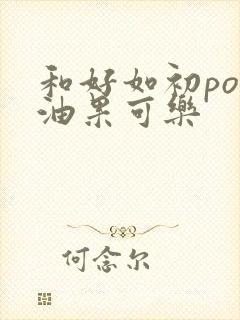 和好如初po
油果可樂
何念尔